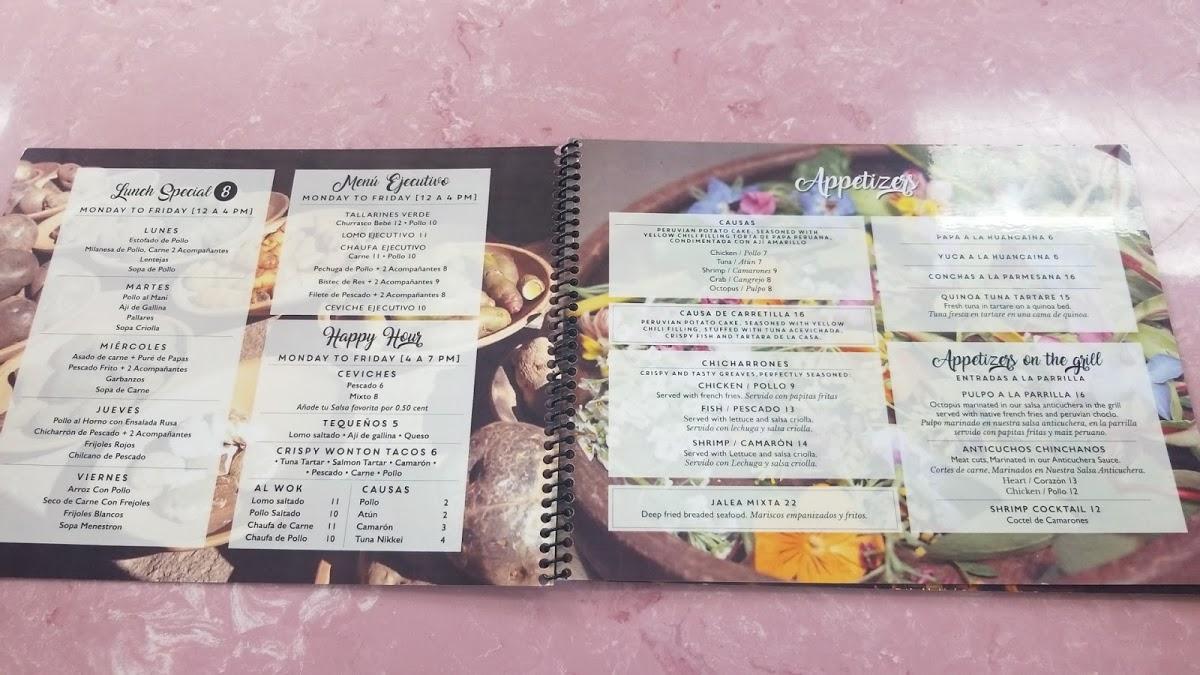 Lunch Special 8
MONDAY TO FRIDAY [12 A 4 PM]
LUNES
Estofado de Pollo
Milanesa de Pollo, Carne 2 Acompañantes
Lentejas
Sopa de Pollo
MARTES
Pollo al Mani
Aji de Gallina
Pallares
Sopa Criolla
MIÉRCOLES
Asado de carne + Puré de Papas
Pescado Frito + 2 Acompañantes
Garbanzos
Sopa de Carne
JUEVES
Pollo al Horno con Ensalada Rusa
Chicharrón de Pescado + 2 Acompañantes
Frijoles Rojos
Chilcano de Pescado
VIERNES
Arroz Con Pollo
Seco de Carne Con Frejoles
Frijoles Blancos
Sopa Menestron
Menú Ejecutivo
MONDAY TO FRIDAY [12 A 4 PM]
TALLARINES VERDE
Churrasco Bebé 12 • Pollo 10
LOMO EJECUTIVO 11
CHAUFA EJECUTIVO
Carne 11 • Pollo 10
Pechuga de Pollo + 2 Acompañantes 8
Bistec de Res + 2 Acompañantes 9
Filete de Pescado + 2 Acompañantes 8
CEVICHE EJECUTIVO 10
Happy Hour
MONDAY TO FRIDAY [4 A 7 PM]
CEVICHES
Pescado 6
Mixto 8
Añade tu Salsa favorita por 0.50 cent
TEQUEÑOS 5
Lomo saltado • Aji de gallina • Queso
CRISPY WONTON TACOS 6
• Tuna Tartar • Salmon Tartar • Camarón •
• Pescado • Carne • Pollo
AL WOK
Lomo saltado 11
Pollo Saltado 10
Chaufa de Carne 11
Chaufa de Pollo 10
CAUSAS
Pollo 2
Atún 2
Camarón 3
Tuna Nikkei 4
Appetizers
CAUSAS
PERUVIAN POTATO CAKE, SEASONED WITH
YELLOW CHILI FILLING TORTA DE PAPA PERUANA,
CONDIMENTADA CON AJÍ AMARILLO
Chicken / Pollo 7
Tuna / Atún 7
Shrimp / Camarones 9
Crab / Cangrejo 8
Octopus / Pulpo 8
CAUSA DE CARRETILLA 16
PERUVIAN POTATO CAKE, SEASONED WITH YELLOW
CHILI FILLING, STUFFED WITH TUNA ACEVICHADA,
CRISPY FISH AND TARTARA DE LA CASA.
CHICHARRONES
CRISPY AND TASTY GREAVES, PERFECTLY SEASONED:
CHICKEN / POLLO 9
Served with french fries. Servido con papitas fritas
FISH / PESCADO 13
Served with lettuce and salsa criolla.
Servido con lechuga y salsa criolla.
SHRIMP / CAMARÓN 14
Served with Lettuce and salsa criolla.
Servido con Lechuga y salsa criolla.
JALEA MIXTA 22
Deep fried breaded seafood. Mariscos empanizados y fritos.
PAPA A LA HUANCAINA 6
YUCA A LA HUANCAINA 6
CONCHAS A LA PARMESANA 16
QUINOA TUNA TARTARE 15
Fresh tuna in tartare on a quinoa bed.
Tuna fresca en tartare en una cama de quinoa.
Appetizers on the grill
ENTRADAS A LA PARRILLA
PULPO A LA PARRILLA 16
Octopus marinated in our salsa anticuchera in the grill
served with native french fries and peruvian choclo.
Pulpo marinado en nuestra salsa anticuchera, en la parrilla
servido con papitas fritas y maiz peruano.
ANTICUCHOS CHINCHANOS
Meat cuts, Marinated in our Anticuchera Sauce.
Cortes de carne, Marinados en Nuestra Salsa Anticuchera.
Heart / Corazón 13
Chicken / Pollo 12
SHRIMP COCKTAIL 12
Coctel de Camarones